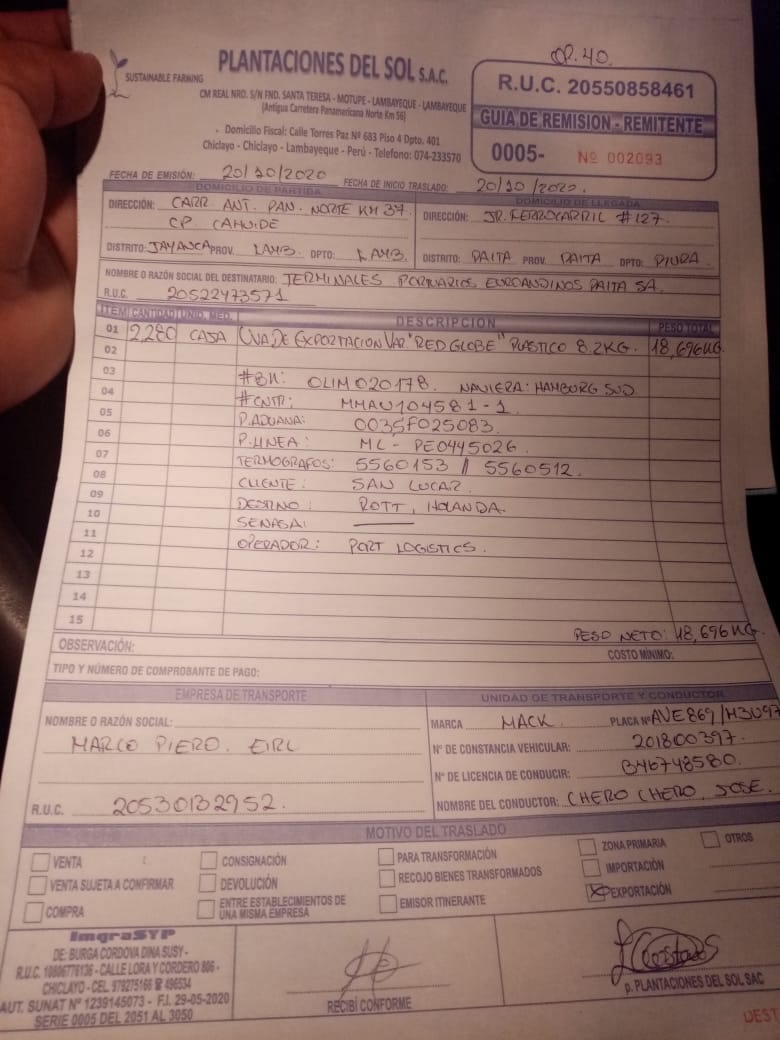 OP. 40.
SUSTAINABLE FARMING
PLANTACIONES DEL SOL S.A.C.
CM REAL NRO. S/N FND. SANTA TERESA - MOTUPE - LAMBAYEQUE - LAMBAYEQUE
(Antigua Carretera Panamericana Norte Km 56)
Domicilio Fiscal: Calle Torres Paz Nº 683 Piso 4 Dpto. 401
Chiclayo - Chiclayo - Lambayeque - Perú - Telefono: 074-233570
R.U.C. 20550858461
GUIA DE REMISION - REMITENTE
0005- Nº 002093
FECHA DE EMISIÓN: 20/10/2020 FECHA DE INICIO TRASLADO: 20/10/2020.
DOMICILIO DE PARTIDA
DIRECCIÓN: CARR. ANT. PAN. NORTE KM 37
CP. CAHUIDE
DISTRITO: JAYANCA PROV. LAMB. DPTO: LAMB.
DOMICILIO DE LLEGADA
DIRECCIÓN: JR. FERROCARRIL #127
DISTRITO: PAITA PROV. PAITA DPTO: PIURA
NOMBRE O RAZÓN SOCIAL DEL DESTINATARIO: TERMINALES PORTUARIOS EUROANDINOS PAITA SA.
R.U.C. 20522473571
ITEM CANTIDAD UNID. MED. DESCRIPCION PESO TOTAL
01 2,280 CAJA UVA DE EXPORTACION VAR "RED GLOBE" PLASTICO 8.2KG. 18,696KG.
02
03 #BK: OLIM020178. NAVIERA: HAMBURG SUD.
04 #CNTR: MMAU104581-1
05 P.ADUANA: 003SF025083.
06 P.LINEA: ML-PE0445026.
07 TERMOGRAFOS: 5560153 // 5560512.
08 CLIENTE: SAN LUCAR.
09 DESTINO: ROTT, HOLANDA.
10 SENASA:
11 OPERADOR: PORT LOGISTICS.
12
13
14
15
PESO NETO: 18,696KG.
OBSERVACIÓN:
COSTO MÍNIMO:
TIPO Y NÚMERO DE COMPROBANTE DE PAGO:
EMPRESA DE TRANSPORTE
NOMBRE O RAZÓN SOCIAL:
MARCO PIERO. EIRL
R.U.C. 20530132952.
UNIDAD DE TRANSPORTE Y CONDUCTOR
MARCA MACK. PLACA Nº AVE869/M3U97
Nº DE CONSTANCIA VEHICULAR: 201800397.
Nº DE LICENCIA DE CONDUCIR: B46748580.
NOMBRE DEL CONDUCTOR: CHERO CHERO, JOSE.
MOTIVO DEL TRASLADO
VENTA
VENTA SUJETA A CONFIRMAR
COMPRA
CONSIGNACIÓN
DEVOLUCIÓN
ENTRE ESTABLECIMIENTOS DE
UNA MISMA EMPRESA
PARA TRANSFORMACIÓN
RECOJO BIENES TRANSFORMADOS
EMISOR ITINERANTE
ZONA PRIMARIA
IMPORTACIÓN
X EXPORTACIÓN
OTROS
ImgraSYP
DE: BURGA CORDOVA DINA SUSY -
R.U.C. 10806778136 - CALLE LORA Y CORDERO 806 -
CHICLAYO - CEL. 979275166 ☎ 496534
AUT. SUNAT Nº 1239145073 - F.I. 29-05-2020
SERIE 0005 DEL 2051 AL 3050
RECIBÍ CONFORME
p. PLANTACIONES DEL SOL SAC
DEST